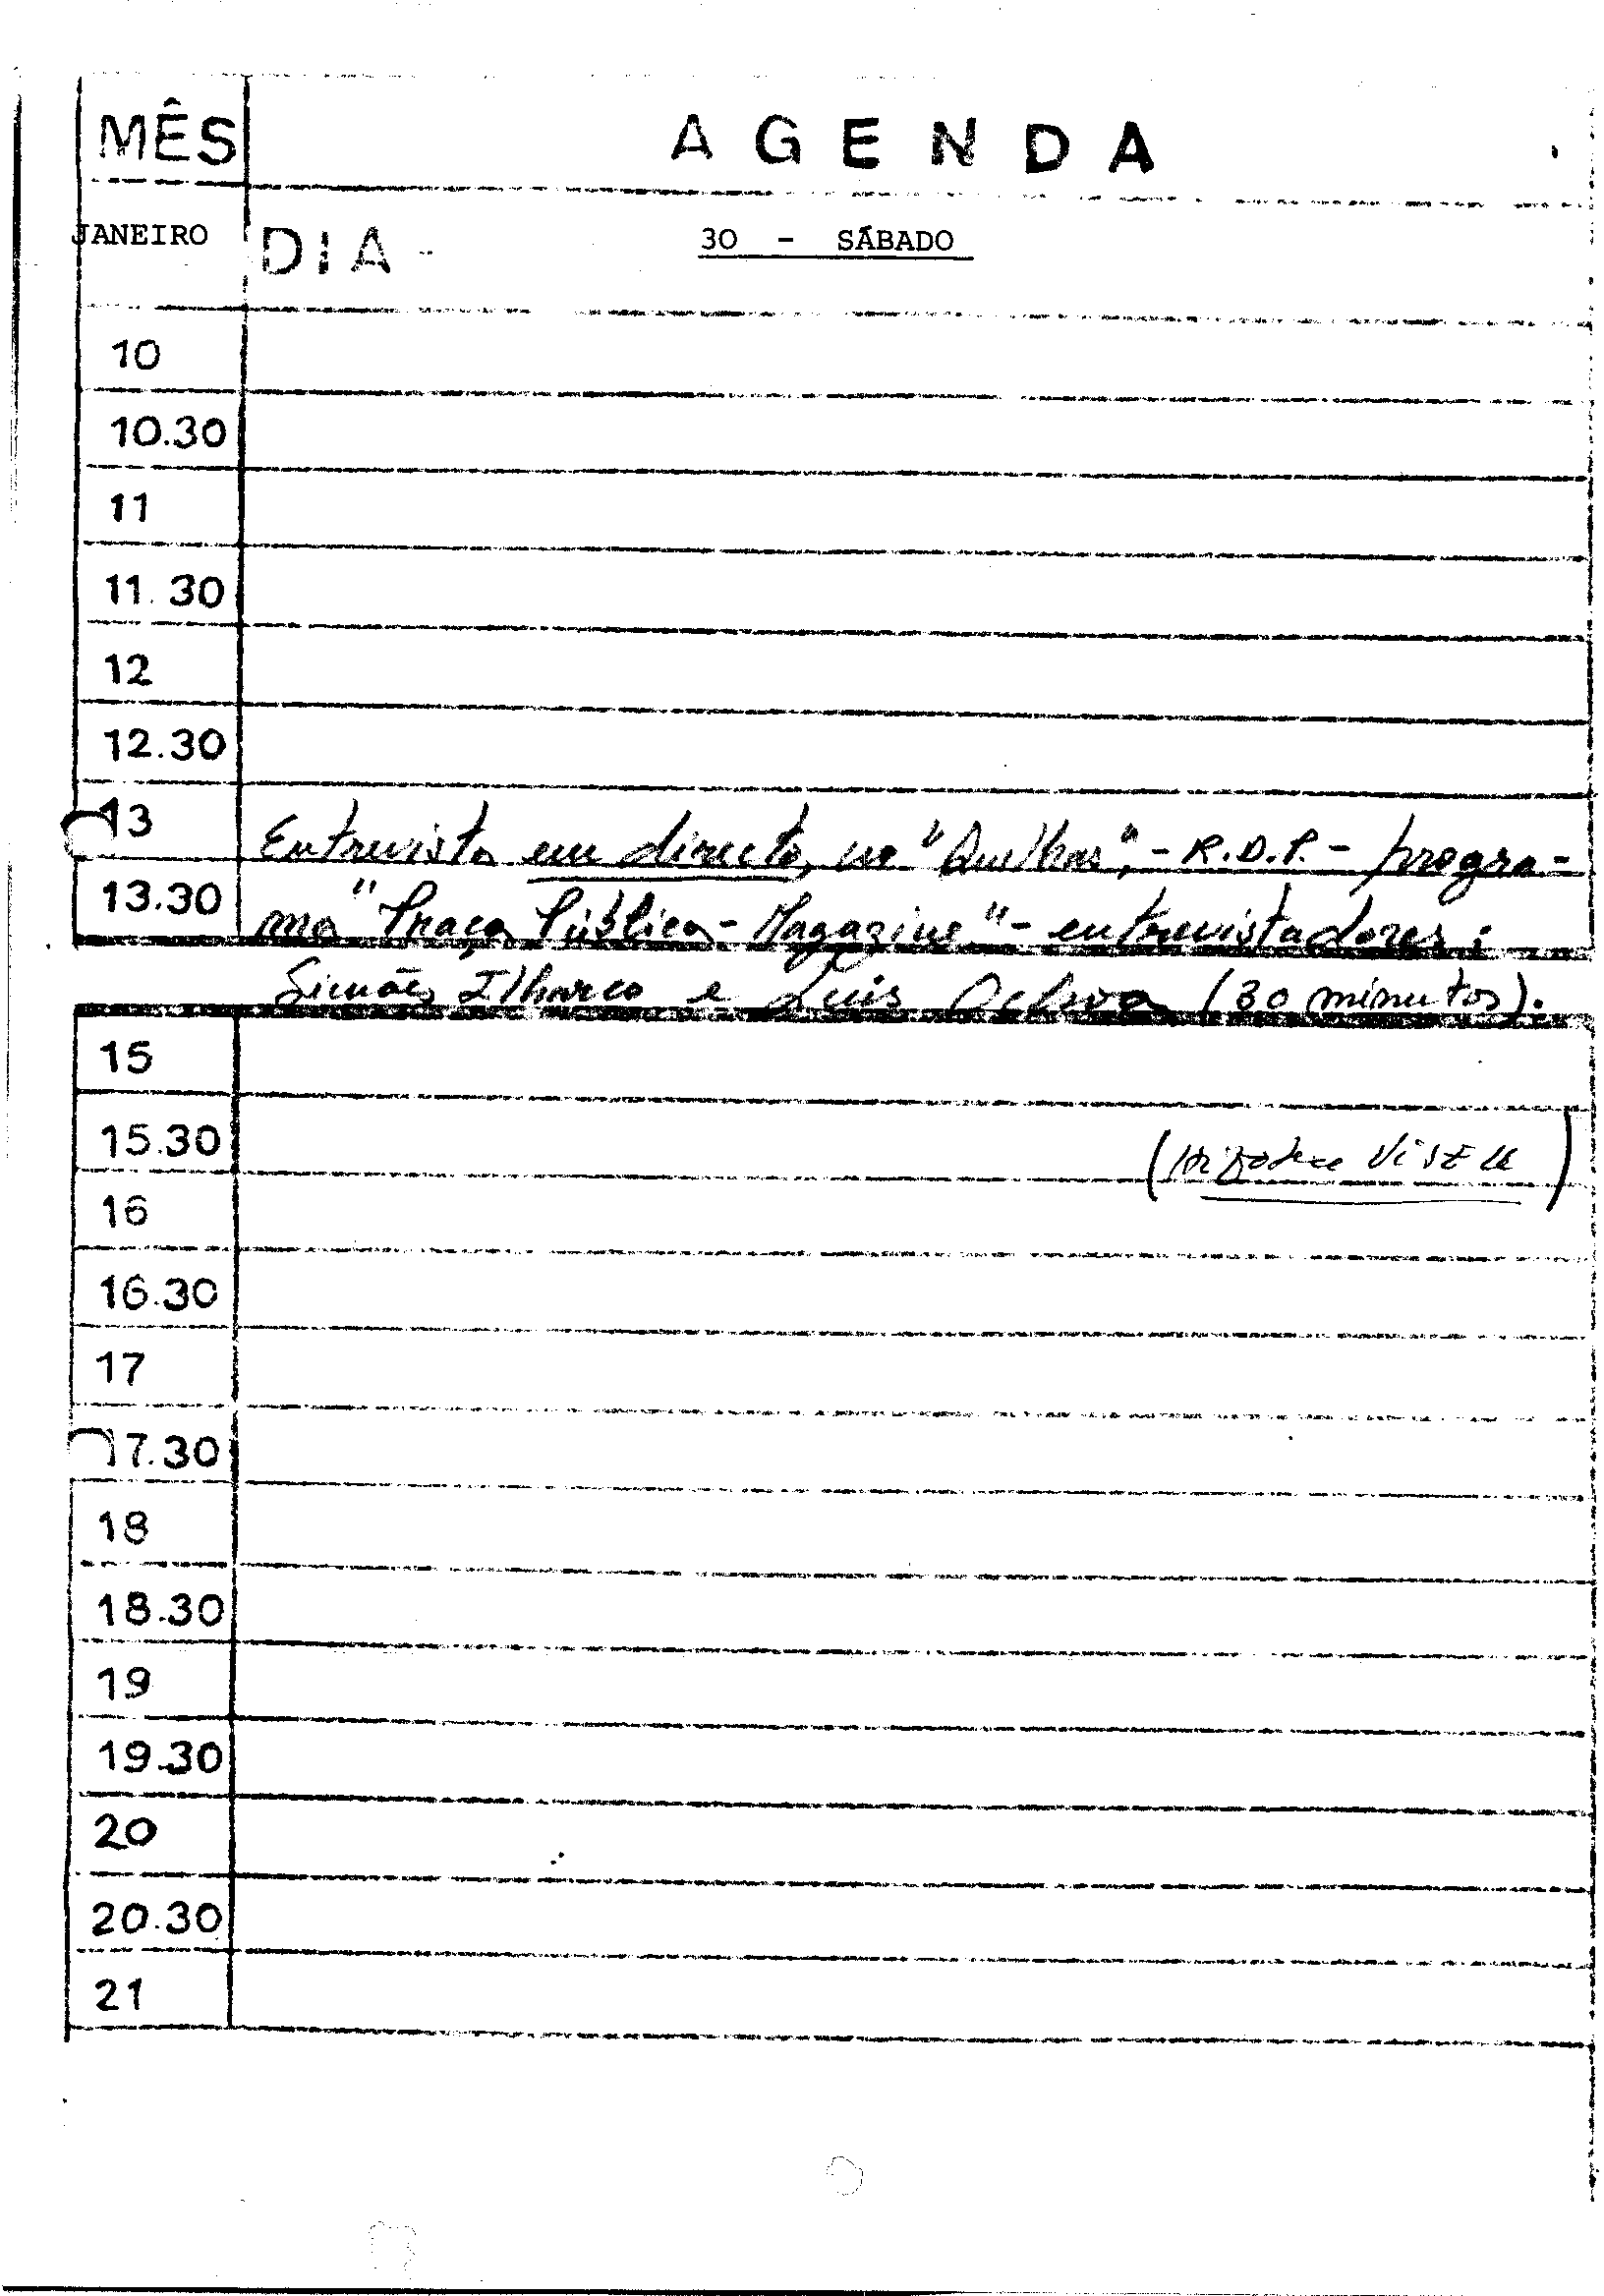 MÊS
A G E N D A
JANEIRO
DIA -
30 - SÁBADO
10
10.30
11
11.30
12
12.30
13
Entrevista em directo, no "Quelhas", - R.D.P. - progra-
13.30
ma "Praça Pública - Magazine" - entrevistadores:
Simões Ilharco e Luís Ochoa (30 minutos).
15
15.30
16
16.30
17
17.30
18
18.30
19
19.30
20
20.30
21